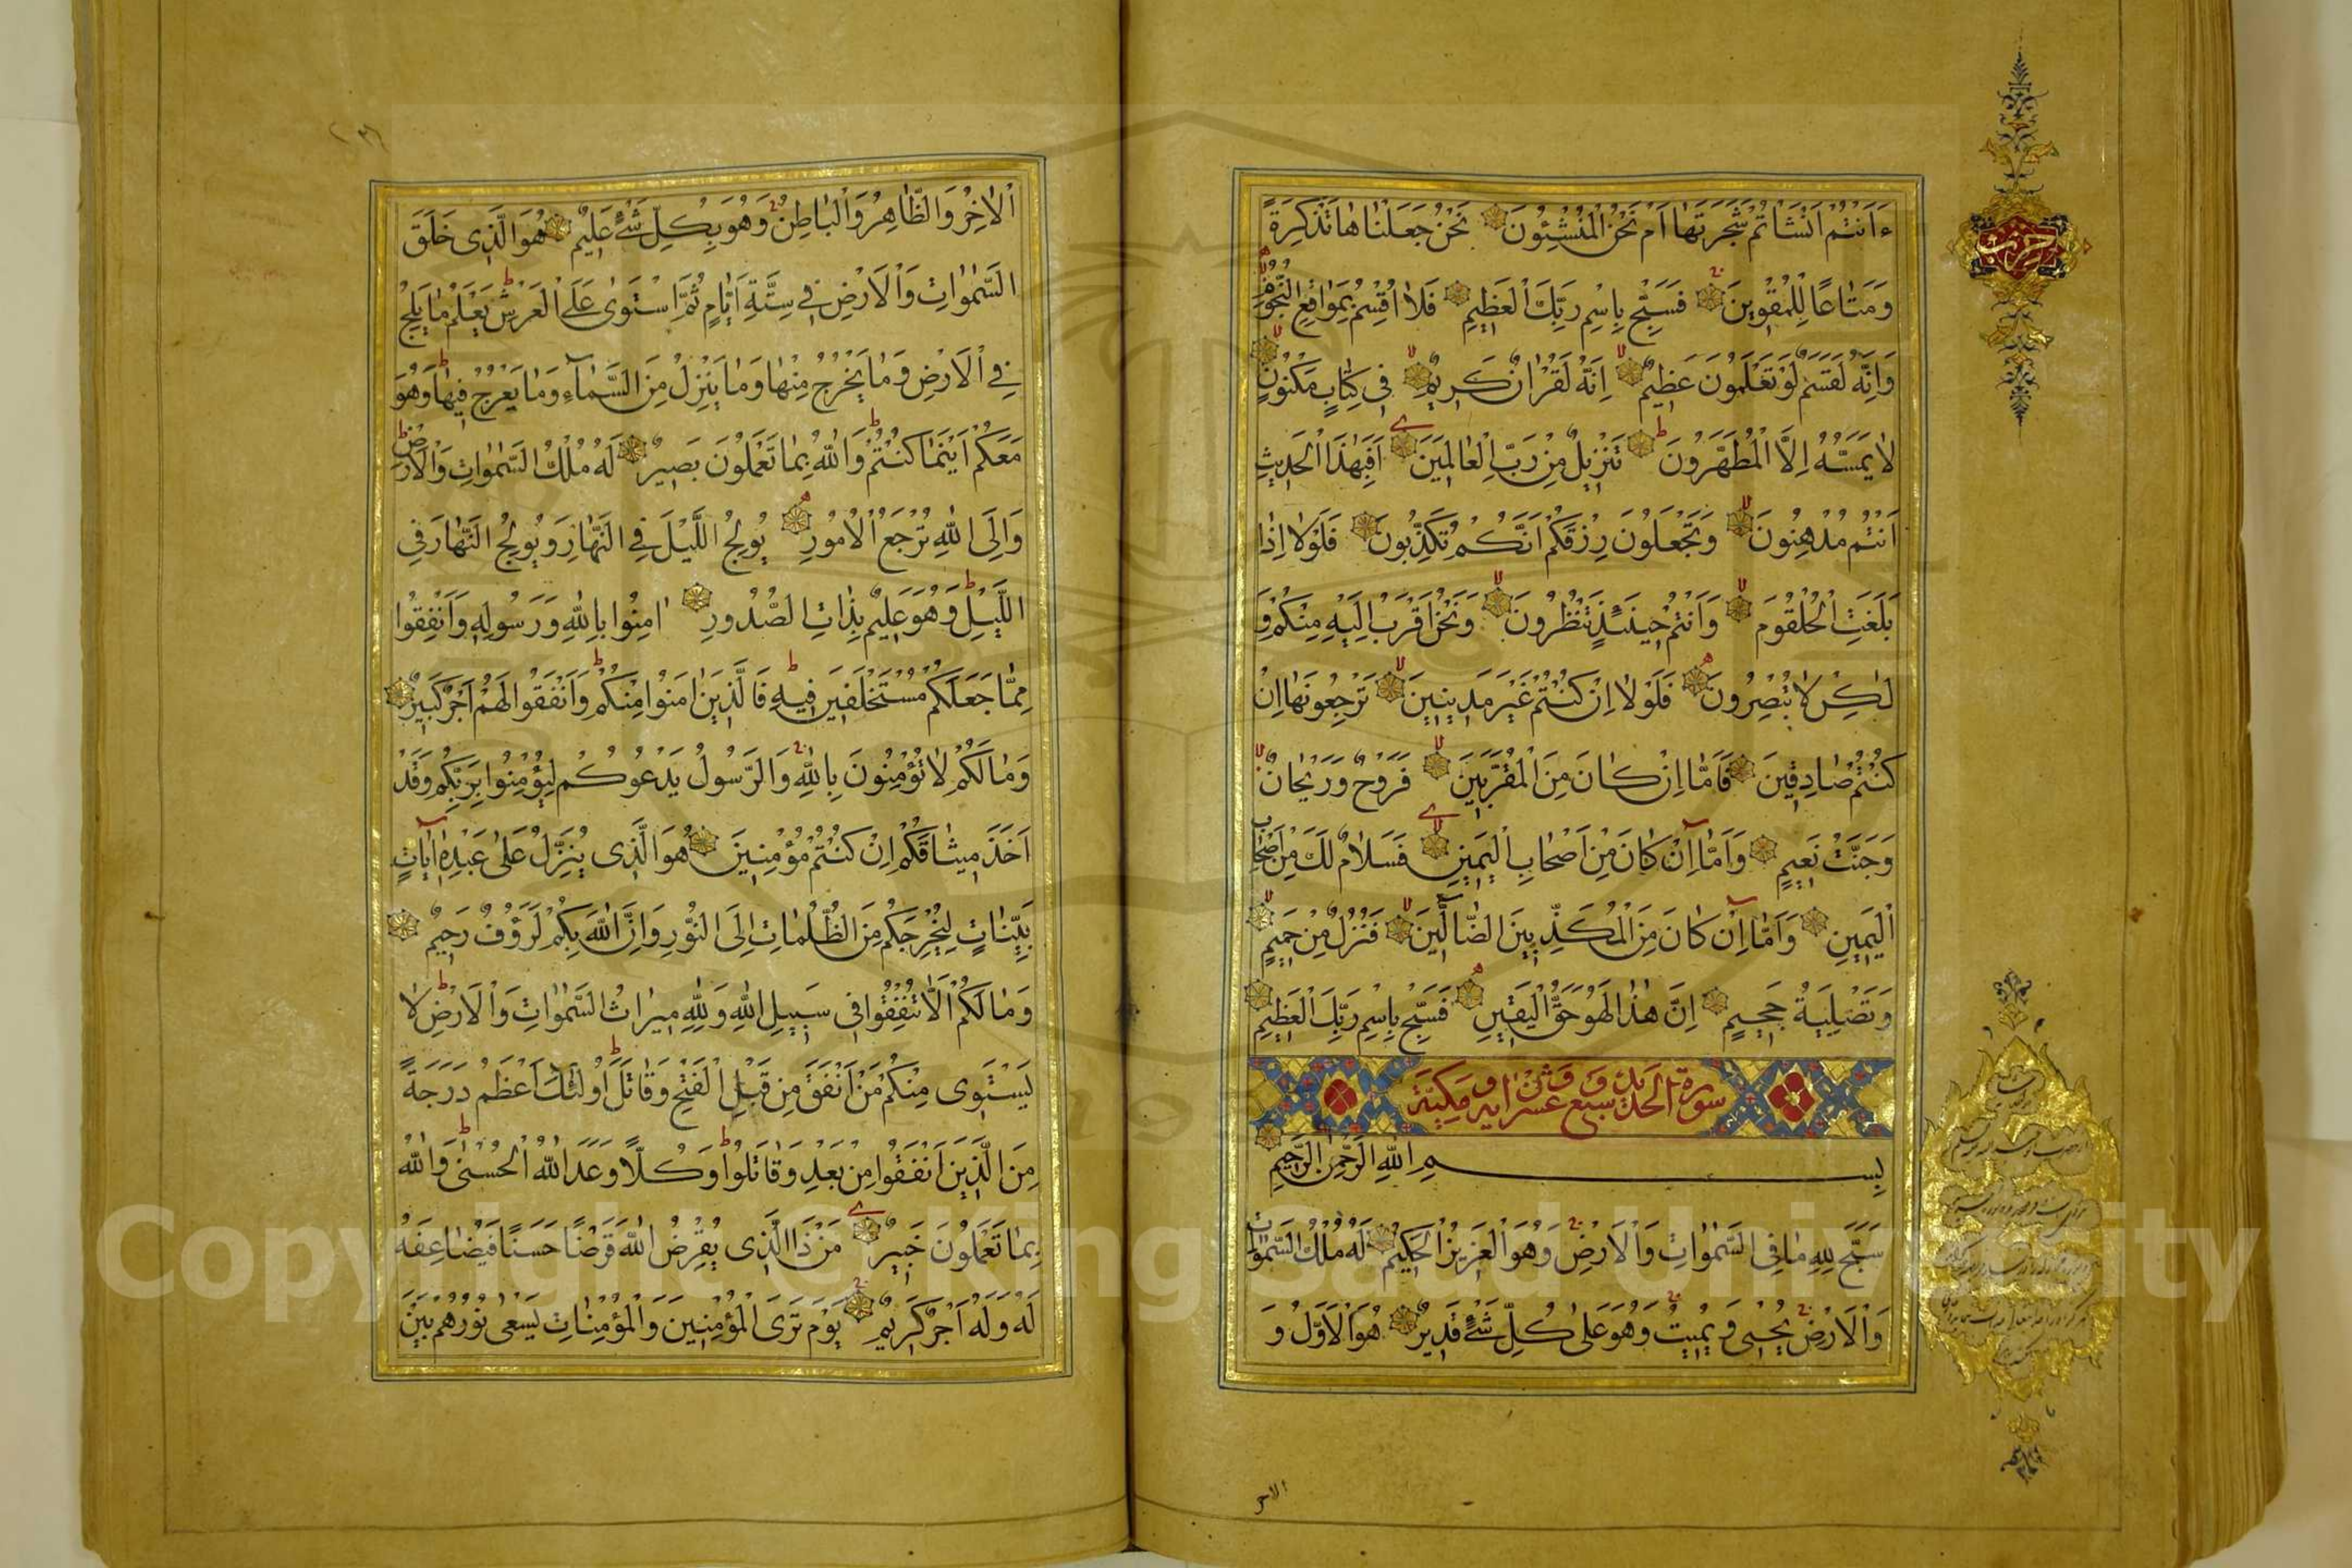 حزب
ءَاَنْتُمْ اَنْشَاْتُمْ شَجَرَتَهَا اَمْ نَحْنُ الْمُنْشِئُونَ نَحْنُ جَعَلْنَاهَا تَذْكِرَةً
وَمَتَاعًا لِلْمُقْوِينَ فَسَبِّحْ بِاسْمِ رَبِّكَ الْعَظِيمِ فَلَا اُقْسِمُ بِمَوَاقِعِ النُّجُومِ
وَاِنَّهُ لَقَسَمٌ لَوْ تَعْلَمُونَ عَظِيمٌ اِنَّهُ لَقُرْاٰنٌ كَرِيمٌ فِي كِتَابٍ مَكْنُونٍ
لَا يَمَسُّهُ اِلَّا الْمُطَهَّرُونَ تَنْزِيلٌ مِنْ رَبِّ الْعَالَمِينَ اَفَبِهٰذَا الْحَدِيثِ
اَنْتُمْ مُدْهِنُونَ وَتَجْعَلُونَ رِزْقَكُمْ اَنَّكُمْ تُكَذِّبُونَ فَلَوْلَا اِذَا
بَلَغَتِ الْحُلْقُومَ وَاَنْتُمْ حِينَئِذٍ تَنْظُرُونَ وَنَحْنُ اَقْرَبُ اِلَيْهِ مِنْكُمْ وَ
لٰكِنْ لَا تُبْصِرُونَ فَلَوْلَا اِنْ كُنْتُمْ غَيْرَ مَدِينِينَ تَرْجِعُونَهَا اِنْ
كُنْتُمْ صَادِقِينَ فَاَمَّا اِنْ كَانَ مِنَ الْمُقَرَّبِينَ فَرَوْحٌ وَرَيْحَانٌ
وَجَنَّتُ نَعِيمٍ وَاَمَّا اِنْ كَانَ مِنْ اَصْحَابِ الْيَمِينِ فَسَلَامٌ لَكَ مِنْ اَصْحَابِ
الْيَمِينِ وَاَمَّا اِنْ كَانَ مِنَ الْمُكَذِّبِينَ الضَّالِّينَ فَنُزُلٌ مِنْ حَمِيمٍ
وَتَصْلِيَةُ جَحِيمٍ اِنَّ هٰذَا لَهُوَ حَقُّ الْيَقِينِ فَسَبِّحْ بِاسْمِ رَبِّكَ الْعَظِيمِ
سورة الحديد سبع وعشرن آية ومكية
بِسْمِ اللهِ الرَّحْمٰنِ الرَّحِيمِ
سَبَّحَ لِلّٰهِ مَا فِي السَّمٰوَاتِ وَالْاَرْضِ وَهُوَ الْعَزِيزُ الْحَكِيمُ لَهُ مُلْكُ السَّمٰوَاتِ
وَالْاَرْضِ يُحْيِي وَيُمِيتُ وَهُوَ عَلٰى كُلِّ شَيْءٍ قَدِيرٌ هُوَ الْاَوَّلُ وَ
الاخر
اْلاٰخِرُ وَالظَّاهِرُ وَالْبَاطِنُ وَهُوَ بِكُلِّ شَيْءٍ عَلِيمٌ هُوَ الَّذِي خَلَقَ
السَّمٰوَاتِ وَالْاَرْضَ فِي سِتَّةِ اَيَّامٍ ثُمَّ اسْتَوٰى عَلَى الْعَرْشِ يَعْلَمُ مَا يَلِجُ
فِي الْاَرْضِ وَمَا يَخْرُجُ مِنْهَا وَمَا يَنْزِلُ مِنَ السَّمَاءِ وَمَا يَعْرُجُ فِيهَا وَهُوَ
مَعَكُمْ اَيْنَمَا كُنْتُمْ وَاللهُ بِمَا تَعْمَلُونَ بَصِيرٌ لَهُ مُلْكُ السَّمٰوَاتِ وَالْاَرْضِ
وَاِلَى اللهِ تُرْجَعُ الْاُمُورُ يُولِجُ اللَّيْلَ فِي النَّهَارِ وَيُولِجُ النَّهَارَ فِي
اللَّيْلِ وَهُوَ عَلِيمٌ بِذَاتِ الصُّدُورِ اٰمِنُوا بِاللهِ وَرَسُولِهِ وَاَنْفِقُوا
مِمَّا جَعَلَكُمْ مُسْتَخْلَفِينَ فِيهِ فَالَّذِينَ اٰمَنُوا مِنْكُمْ وَاَنْفَقُوا لَهُمْ اَجْرٌ كَبِيرٌ
وَمَا لَكُمْ لَا تُؤْمِنُونَ بِاللهِ وَالرَّسُولُ يَدْعُوكُمْ لِتُؤْمِنُوا بِرَبِّكُمْ وَقَدْ
اَخَذَ مِيثَاقَكُمْ اِنْ كُنْتُمْ مُؤْمِنِينَ هُوَ الَّذِي يُنَزِّلُ عَلٰى عَبْدِهِ اٰيَاتٍ
بَيِّنَاتٍ لِيُخْرِجَكُمْ مِنَ الظُّلُمَاتِ اِلَى النُّورِ وَاِنَّ اللهَ بِكُمْ لَرَؤُفٌ رَحِيمٌ
وَمَا لَكُمْ اَلَّا تُنْفِقُوا فِي سَبِيلِ اللهِ وَلِلّٰهِ مِيرَاثُ السَّمٰوَاتِ وَالْاَرْضِ لَا
يَسْتَوِي مِنْكُمْ مَنْ اَنْفَقَ مِنْ قَبْلِ الْفَتْحِ وَقَاتَلَ اُولٰئِكَ اَعْظَمُ دَرَجَةً
مِنَ الَّذِينَ اَنْفَقُوا مِنْ بَعْدُ وَقَاتَلُوا وَكُلًّا وَعَدَ اللهُ الْحُسْنٰى وَاللهُ
بِمَا تَعْمَلُونَ خَبِيرٌ مَنْ ذَا الَّذِي يُقْرِضُ اللهَ قَرْضًا حَسَنًا فَيُضَاعِفَهُ
لَهُ وَلَهُ اَجْرٌ كَرِيمٌ يَوْمَ تَرَى الْمُؤْمِنِينَ وَالْمُؤْمِنَاتِ يَسْعٰى نُورُهُمْ بَيْنَ
Copyright © King Saud University